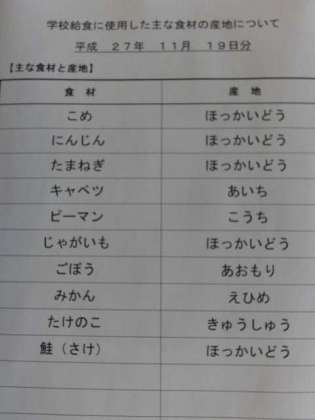 学校給食に使用した主な食材の産地について
平成 27年 11月 19日分
【主な食材と産地】
食 材 産 地
こめ ほっかいどう
にんじん ほっかいどう
たまねぎ ほっかいどう
キャベツ あいち
ピーマン こうち
じゃがいも ほっかいどう
ごぼう あおもり
みかん えひめ
たけのこ きゅうしゅう
鮭（さけ） ほっかいどう